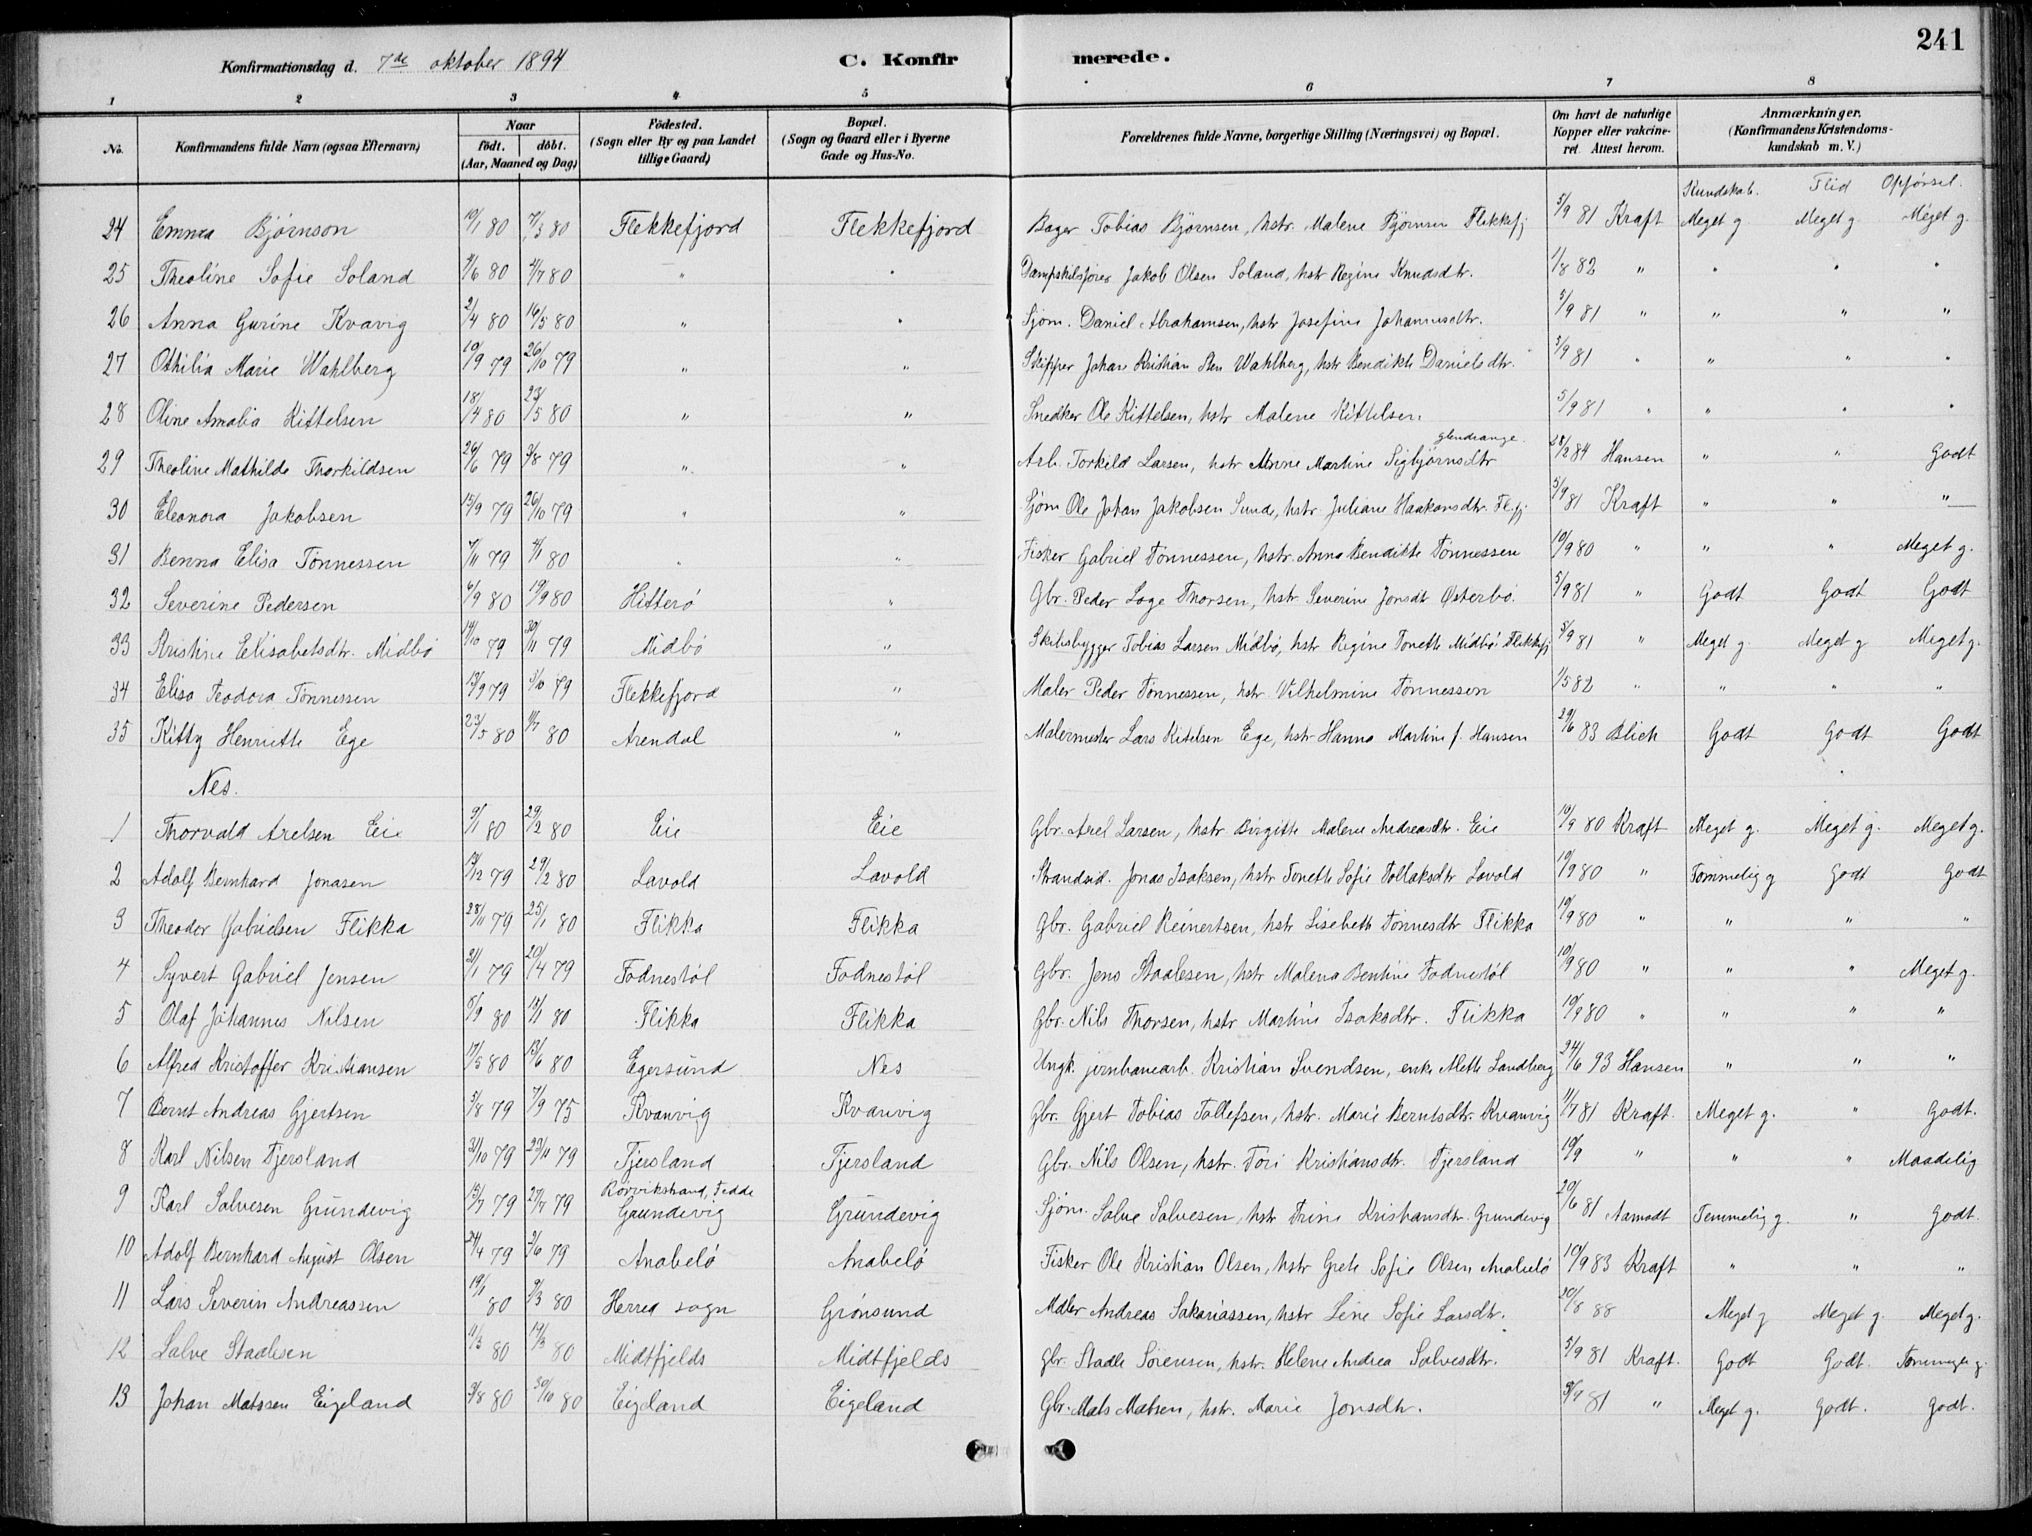 241
Konfirmationsdag d. 7de oktober 1894 C. Konfirmerede.
1 2 3 4 5 6 7 8
No. Konfirmandens fulde Navn (ogsaa Efternavn) Naar födt. döbt. (Aar, Maaned og Dag) Födested. (Sogn eller By og paa Landet tillige Gaard) Bopæl. (Sogn og Gaard eller i Byerne Gade og Hus-No. Forældrenes fulde Navne, borgerlige Stilling (Næringsvei) og Bopæl. Om havt de naturlige Kopper eller vakcineret. Attest herom. Anmærkninger. (Konfirmandens Kristendomskundskab m. V.)
Kundskab. Flid Opførsel.
24 Emma Bjørnson 10/1 80 7/3 80 Flekkefjord Flekkefjord Bager Tobias Bjørnsen, hstr. Malene Bjørnsen Flekkefj 5/9 81 Kraft Meget g Meget g. Meget g.
25 Theoline Sofie Soland 9/6 80 4/7 80 " " Dampskibsfører Jakob Olsen Soland, hstr Regine Knudsdtr. 1/8 82 " " " "
26 Anna Gurine Kvavig 2/4 80 16/5 80 " " Sjøm. Daniel Abrahamsen, hstr Josefine Johannesdtr. 5/9 81 " " " "
27 Othilia Marie Wahlberg 19/9 79 26/10 79 " " Skipper Johan Kristian Sten Wahlberg, hstr Bendikte Danielsdtr. 5/9 81 " " " "
28 Oline Amalia Kittelsen 18/4 80 23/5 80 " " Snedker Ole Kittelsen, hstr Malene Kittelsen 5/9 81 " " " "
29 Theoline Mathilde Thorkildsen 26/6 79 3/8 79 " " Arb. Torkild Larsen, hstr Anne Martine Sigbjørnsdtr Glendrange 28/2 84 Hansen " " Godt
30 Eleonora Jakobsen 15/9 79 26/10 79 " " Sjøm Ole Johan Jakobsen Sunde, hstr. Juliane Haakonsdtr. Flefj 5/9 81 Kraft " " "
31 Benna Elisa Tønnessen 7/11 79 4/1 80 " " Fisker Gabriel Tønnessen, hstr. Anna Benditte Tønnessen 10/9 80 " " " Meget g.
32 Severine Pedersen 6/9 80 19/9 80 Hitterø " Gbr. Peder Loge Thorsen, hstr. Severine Jonsdt Østerbø. 5/9 81 " Godt Godt Godt
33 Kristine Elisabetsdtr. Midbø 14/10 79 30/11 79 Midbø " Skibsbygger Tobias Larsen Midbø, hstr Regine Tonette Midbø Flekkefj 5/9 81 " Meget g. Meget g Meget g.
34 Elisa Teodora Tønnessen 13/9 79 5/10 79 Flekkefjord " Maler Peder Tønnessen, hstr. Vilhelmine Tønnessen 1/5 82 " " " "
35 Kitty Henriette Ege 23/5 80 11/7 80 Arendal " Malermester Lars Kitelsen Ege, hstr Hanna Martine f. Hansen 29/6 83 Blich Godt Godt Godt
Nes.
1 Thorvald Axelsen Eie 9/1 80 29/2 80 Eie Eie Gbr. Axel Larsen, hstr Birgitte Malene Andreasdtr. Eie 10/9 80 Kraft Meget g. Meget g. Meget g.
2 Adolf Bernhard Jonasen 13/12 79 29/2 80 Lavold Lavold Strandsid. Jonas Isaksen, hstr Tonette Sofie Tollaksdtr Lavold 10/9 80 " Temmelig g Godt Godt
3 Theodor Gabrielsen Flikka 28/11 79 25/1 80 Flikka Flikka Gbr. Gabriel Reinertsen, hstr Lisebeth Tønnesdtr Flikka 10/9 80 " " " "
4 Syvert Gabriel Jensen 21/1 79 20/4 79 Fodnestøl Fodnestøl Gbr. Jens Staalesen, hstr Malena Bentine Fodnestøl 10/9 80 " " " Meget g.
5 Olaf Johannes Nilsen 5/9 80 13/1 80 Flikka Flikka Gbr. Nils Thorsen, hstr Martine Isaksdtr. Flikka 10/9 80 " " " "
6 Alfred Kristoffer Kristiansen 17/5 80 13/6 80 Egersund Nes Ungk. jernbanearb. Kristian Svendsen, enke Mette Landberg 24/6 93 Hansen " " "
7 Bernt Andreas Gjertsen 5/8 79 7/9 75 Kvanvig Kvanvig Gbr. Gjert Tobias Tollefsen, hstr. Marie Berntsdtr. Kvanvig 11/7 81 Kraft. Meget g. " Godt.
8 Karl Nilsen Fjersland 31/10 79 23/11 79 Fjersland Fjersland Gbr. Nils Olsen, hstr. Tori Kristiansdtr. Fjersland 10/9 " " " Maadelig
9 Karl Salvesen Grundevig 13/7 79 27/7 79 Rørvikstrand, Fedde Grundevig Grundevig Sjøm. Salve Salvesen, hstr Trine Kristiansdtr. Grundevig 20/6 81 Aamodt Temmelig g. " Godt.
10 Adolf Bernhard August Olsen 24/4 79 2/6 79 Anabelø Anabelø Fisker Ole Kristian Olsen, hstr Grete Sofie Olsen Anabelø 10/9 83 Kraft " " "
11 Lars Severin Andreassen 19/1 80 9/3 80 Herred sogn Grønsund Maler Andreas Sakariassen, hstr Line Sofie Larsdtr. 20/8 88 Meget g Meget g. Meget g.
12 Salve Staalesen 11/3 80 14/3 80 Midtfjelds Midtfjelds Gbr. Staale Sørensen, hstr. Helene Andrea Salvesdtr. 5/9 81 Kraft. Godt Godt. Temmelig g.
13 Johan Matssen Eigeland 3/8 80 30/10 80 Eigeland Eigeland Gbr. Mats Matsen, hstr. Marie Jonsdtr. 9/9 81 " Meget g. Godt. Godt.